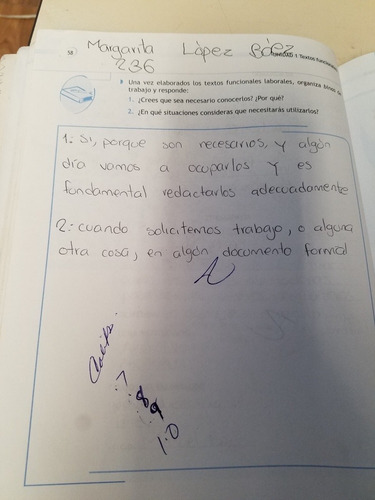 58
Margarita López Báez
UNIDAD 1 Textos
236
Una vez elaborados los textos funcionales laborales, organiza
trabajo y responde:
1. ¿Crees que sea necesario conocerlos? ¿Por qué?
2. ¿En qué situaciones consideras que necesitarás utilizarlos?
1. Si, porque son necesarios, y algún
día vamos a ocuparlos y es
fundamental redactarlos adecuadamente
2.: cuando solicitemos trabajo, o alguna
otra cosa, en algún documento formal
.7
.89
1.0